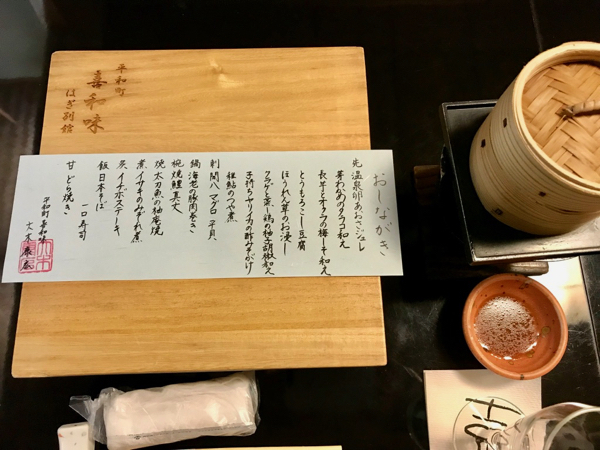 平和町
喜和味
はぎ別館
おしながき
先 温泉卵あおさジュレ
芽わかめのタラコ和え
長芋とオクラの梅しそ和え
とうもろこし豆腐
ほうれん草のお浸し
クラゲと蒸し鶏の柚子胡椒和え
子持ちヤリイカの酢みそがけ
稚鮎のつや煮
刺 間八 マグロ 平貝
鍋 海老の豚肉巻き
椀 焼鱧真丈
焼 太刀魚の柚庵焼
煮 イサキのみぞれ煮
炙 イチボステーキ
飯 日本そば
一口寿司
甘 どら焼き
平和町喜和味